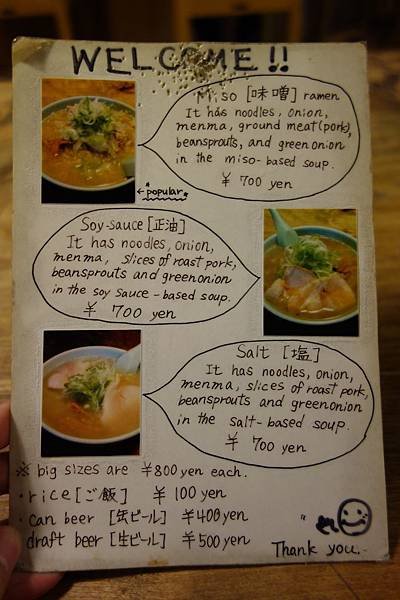 WELCOME!!
Miso [味噌] ramen
It has noodles, onion,
menma, ground meat(pork),
beansprouts, and green onion
in the miso-based soup.
¥ 700 yen
← popular
Soy-sauce [正油]
It has noodles, onion,
menma, slices of roast pork,
beansprouts and greenonion
in the soy sauce-based soup.
¥ 700 yen
Salt [塩]
It has noodles, onion,
menma, slices of roast pork,
beansprouts and greenonion
in the salt-based soup.
¥ 700 yen
※ big sizes are ¥800 yen each.
・rice [ご飯] ¥ 100 yen
・can beer [缶ビール] ¥400 yen
draft beer [生ビール] ¥500 yen
Thank you.